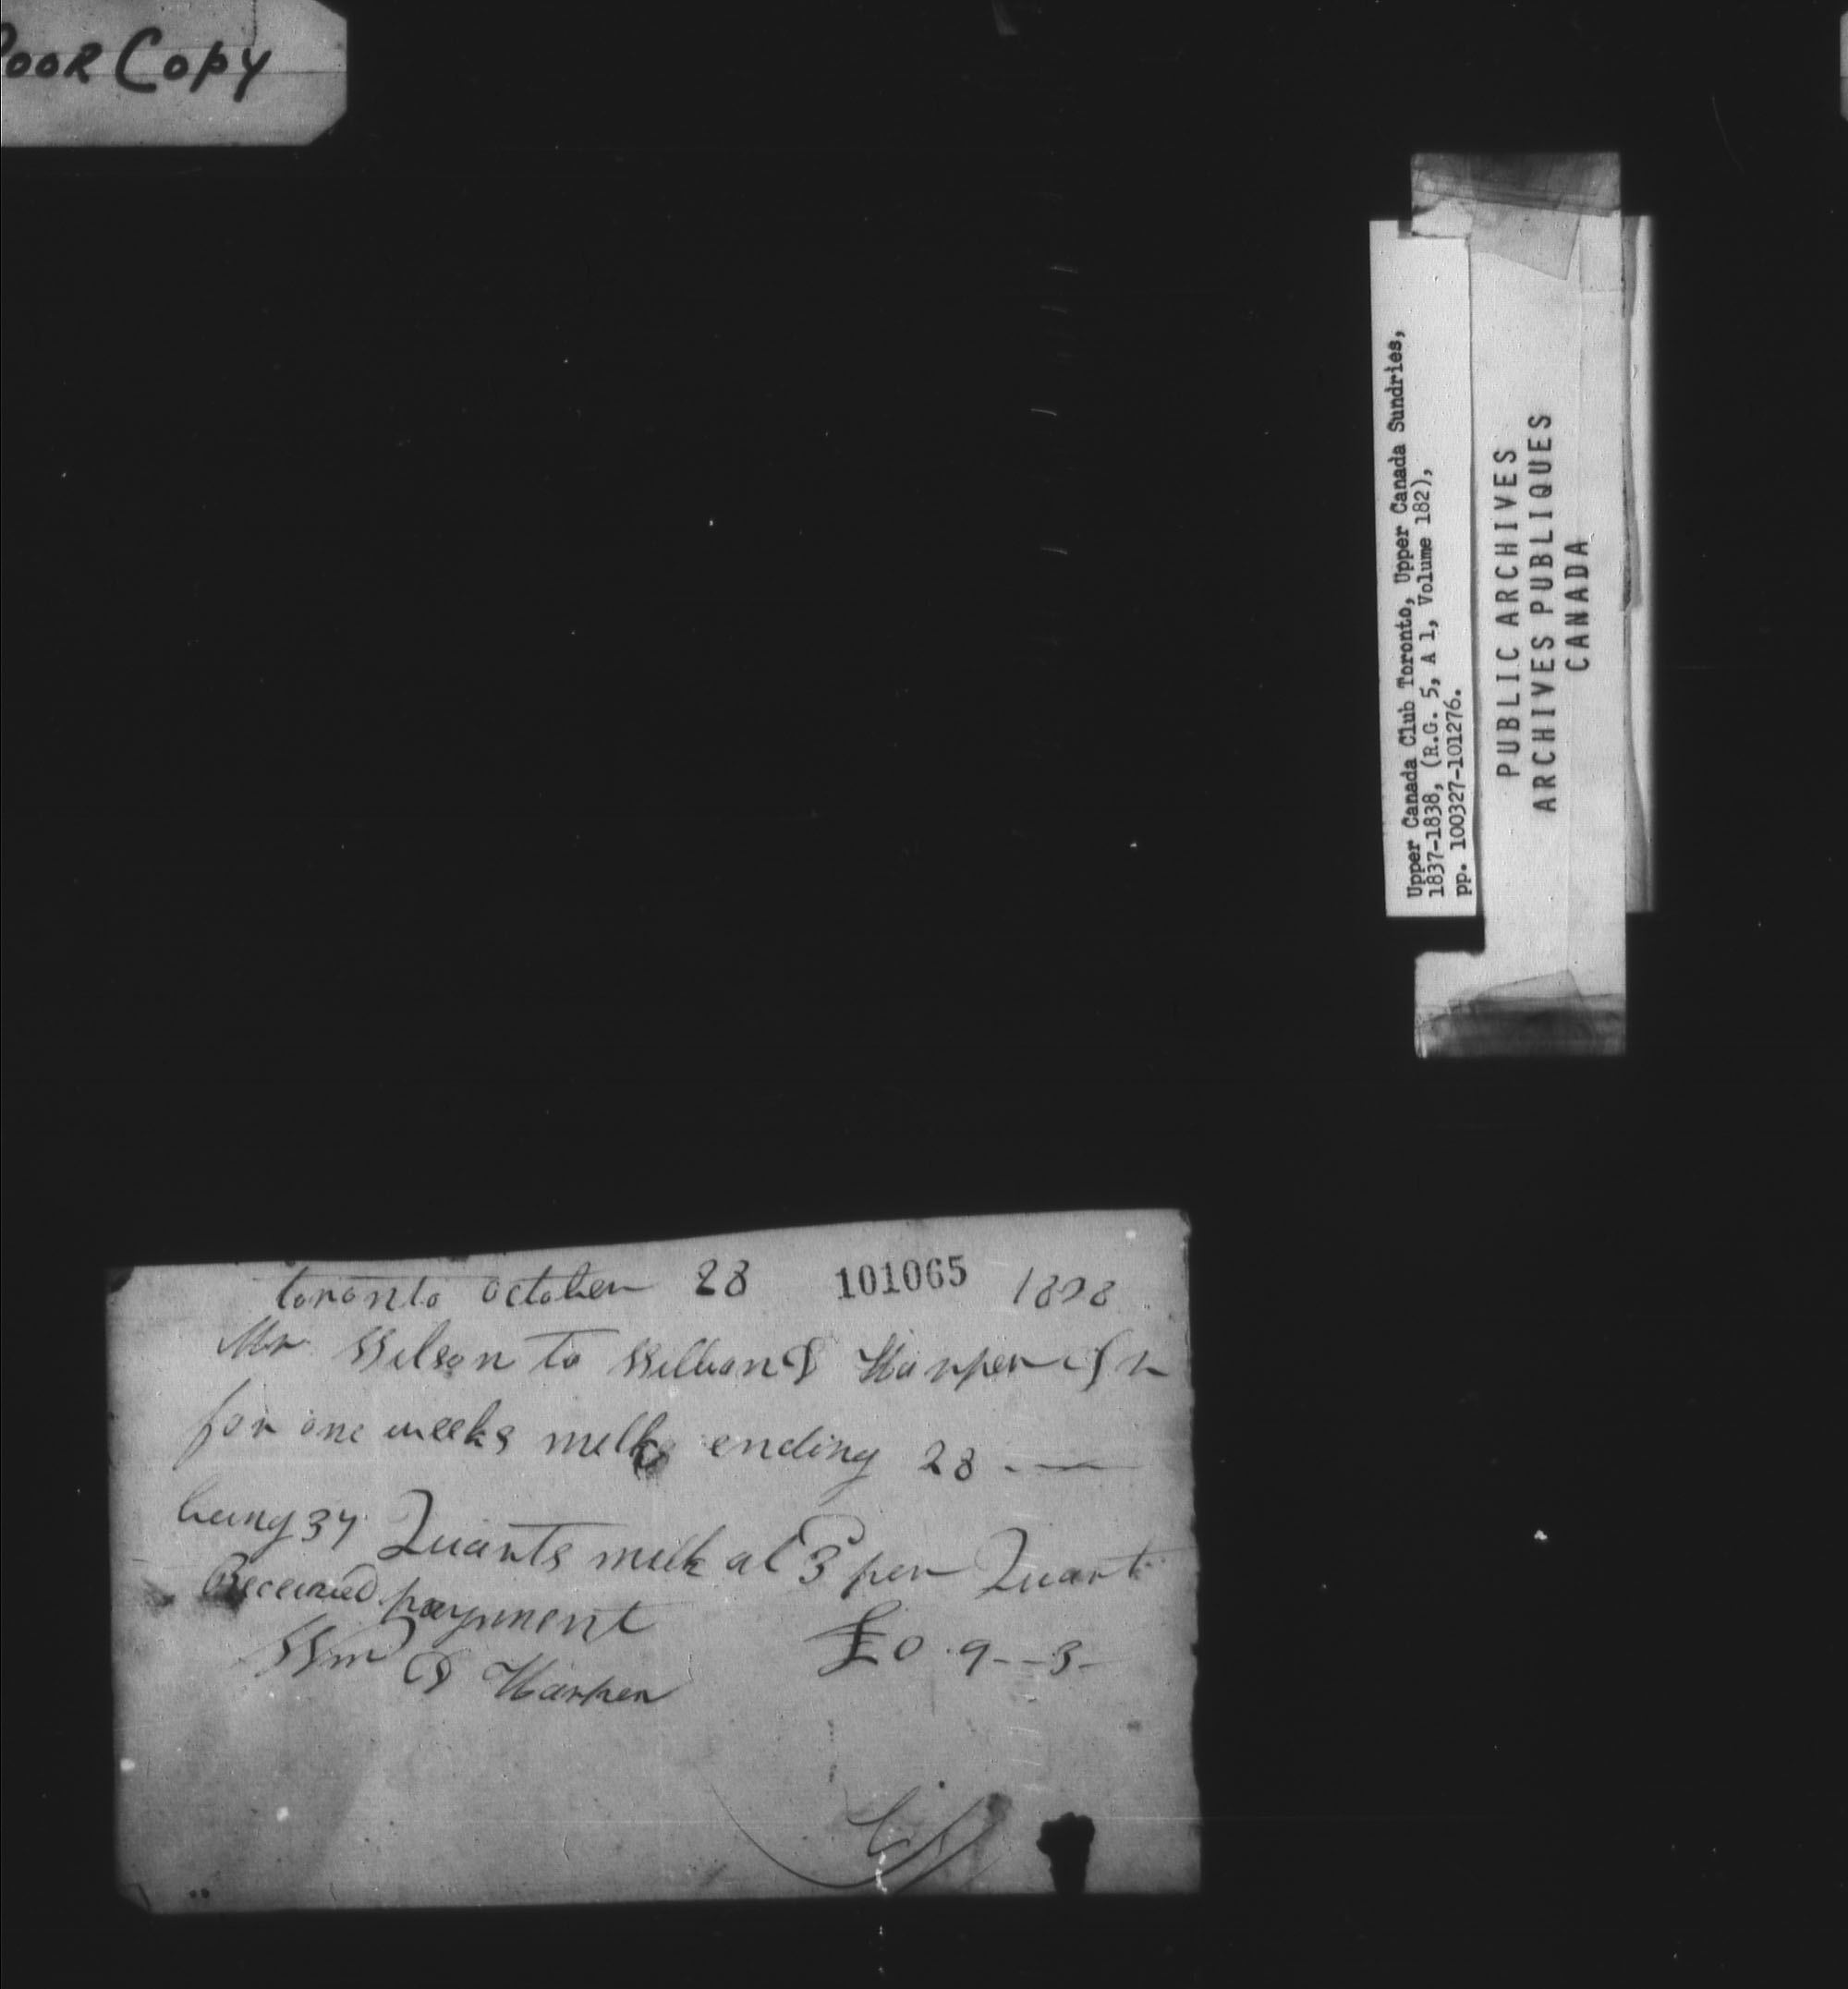 Poor Copy
Upper Canada Club Toronto, Upper Canada Sundries,
1837-1838, (R.G. 5, A 1, Volume 182),
pp. 100327-101276.
PUBLIC ARCHIVES
ARCHIVES PUBLIQUES
CANADA
toronto october 28 101065 1838
Mr Wilson to William D Harper Dr
for one weeks milk ending 28 —
being 37 Quarts milk at 3 per Quart
Received payment
£0.9--3-
Wm D Harper